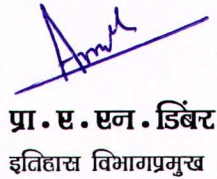 प्रा. ए. एन. डिंबर
इतिहास विभागप्रमुख